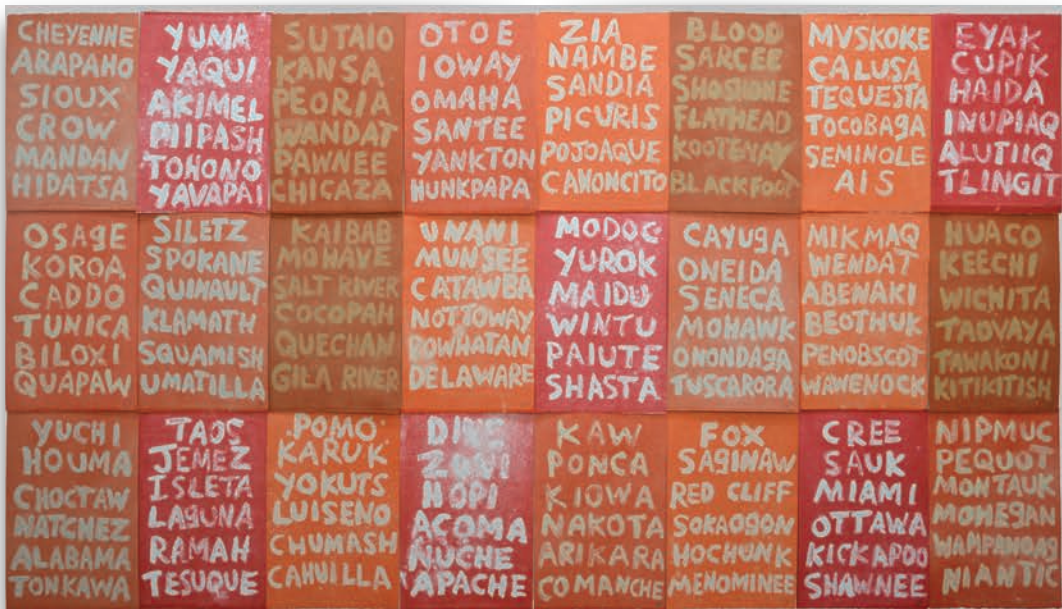 CHEYENNE
ARAPAHO
SIOUX
CROW
MANDAN
HIDATSA
YUMA
YAQUI
AKIMEL
PIIPASH
TOHONO
YAVAPAI
SUTAIO
KANSA
PEORIA
WANDAT
PAWNEE
CHICAZA
OTOE
IOWAY
OMAHA
SANTEE
YANKTON
HUNKPAPA
ZIA
NAMBE
SANDIA
PICURIS
POJOAQUE
CANONCITO
BLOOD
SARCEE
SHOSHONE
FLATHEAD
KOOTENAY
BLACKFOOT
MVSKOKE
CALUSA
TEQUESTA
TOCOBAGA
SEMINOLE
AIS
EYAK
CUPIK
HAIDA
INUPIAQ
ALUTIIQ
TLINGIT
OSAGE
KOROA
CADDO
TUNICA
BILOXI
QUAPAW
SILETZ
SPOKANE
QUINAULT
KLAMATH
SQUAMISH
UMATILLA
KAIBAB
MOHAVE
SALT RIVER
COCOPAH
QUECHAN
GILA RIVER
UNANI
MUNSEE
CATAWBA
NOTTOWAY
POWHATAN
DELAWARE
MODOC
YUROK
MAIDU
WINTU
PAIUTE
SHASTA
CAYUGA
ONEIDA
SENECA
MOHAWK
ONONDAGA
TUSCARORA
MIKMAQ
WENDAT
ABENAKI
BEOTHUK
PENOBSCOT
WAWENOCK
HUACO
KEECHI
WICHITA
TAOVAYA
TAWAKONI
KITIKITISH
YUCHI
HOUMA
CHOCTAW
NATCHEZ
ALABAMA
TONKAWA
TAOS
JEMEZ
ISLETA
LAGUNA
RAMAH
TESUQUE
POMO
KARUK
YOKUTS
LUISENO
CHUMASH
CAHUILLA
DINE
ZUNI
HOPI
ACOMA
NUCHE
APACHE
KAW
PONCA
KIOWA
NAKOTA
ARIKARA
COMANCHE
FOX
SAGINAW
RED CLIFF
SOKAOGON
HOCHUNK
MENOMINEE
CREE
SAUK
MIAMI
OTTAWA
KICKAPOO
SHAWNEE
NIPMUC
PEQUOT
MONTAUK
MOHEGAN
WAMPANOAG
NIANTIC